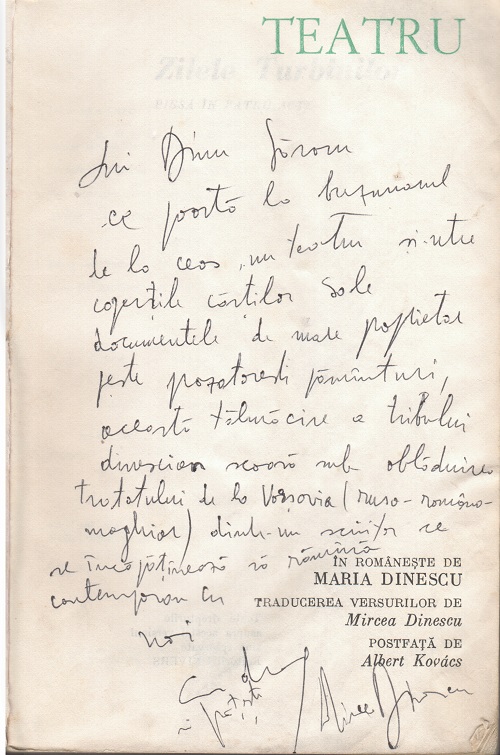 TEATRU
Zilele Turbinilor
PIESĂ ÎN PATRU ACTE
Lui Dinu Săraru
ce poartă la buzunarul
de la ceas un teatru și-ntre
coperțile cărților sale
documentele de mare proprietar
peste prozatorești pămînturi,
această tălmăcire a tribului
dinescian scoasă sub oblăduirea
tratatului de la Varșovia (ruso-româno-
maghiar) dintr-un scriitor ce
se încăpățînează să rămînă
contemporan cu
noi
ÎN ROMÂNEȘTE DE
MARIA DINESCU
TRADUCEREA VERSURILOR DE
Mircea Dinescu
POSTFAȚĂ DE
Albert Kovács
Cu
Mircea Dinescu